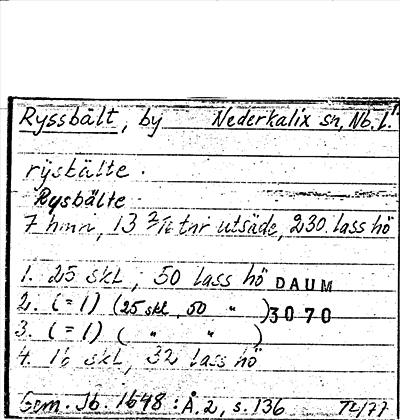 Ryssbält, by Nederkalix sn, Nb. l.
rÿsbälte.
Rysbälte
7 hmn, 13 tnr utsäde, 230 lass hö
1. 25 skl, 50 lass hö
DAUM
2. (=1) (25 skl, 50 " )
3070
3. (=1) ( " " )
4. 16 skl, 32 lass hö
Gem. Jb. 1648 : Å. 2, s. 136